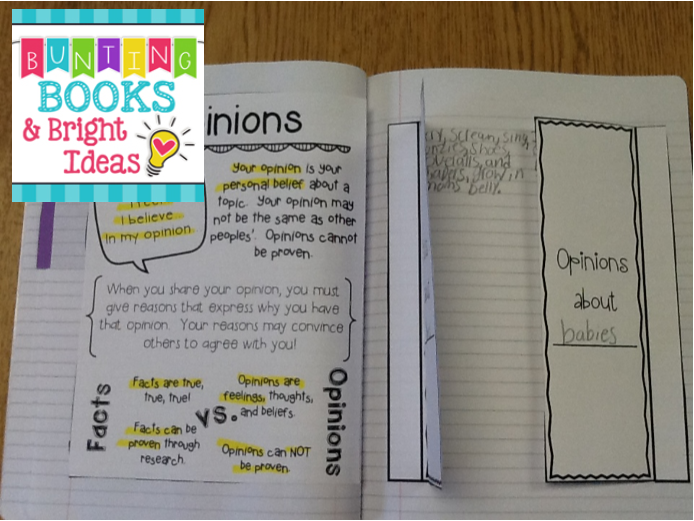 BUNTING
BOOKS
& Bright
Ideas
inions
I believe
In my opinion
Your opinion is your
personal belief about a
topic. Your opinion may
not be the same as other
peoples'. Opinions cannot
be proven.
When you share your opinion, you must
give reasons that express why you have
that opinion. Your reasons may convince
others to agree with you!
Facts
Facts are true,
true, true!
Facts can be
proven through
research.
vs.
Opinions are
feelings, thoughts,
and beliefs.
Opinions can NOT
be proven.
Opinions
scream, sing,
and
grow in
belly.
Opinions
about
babies